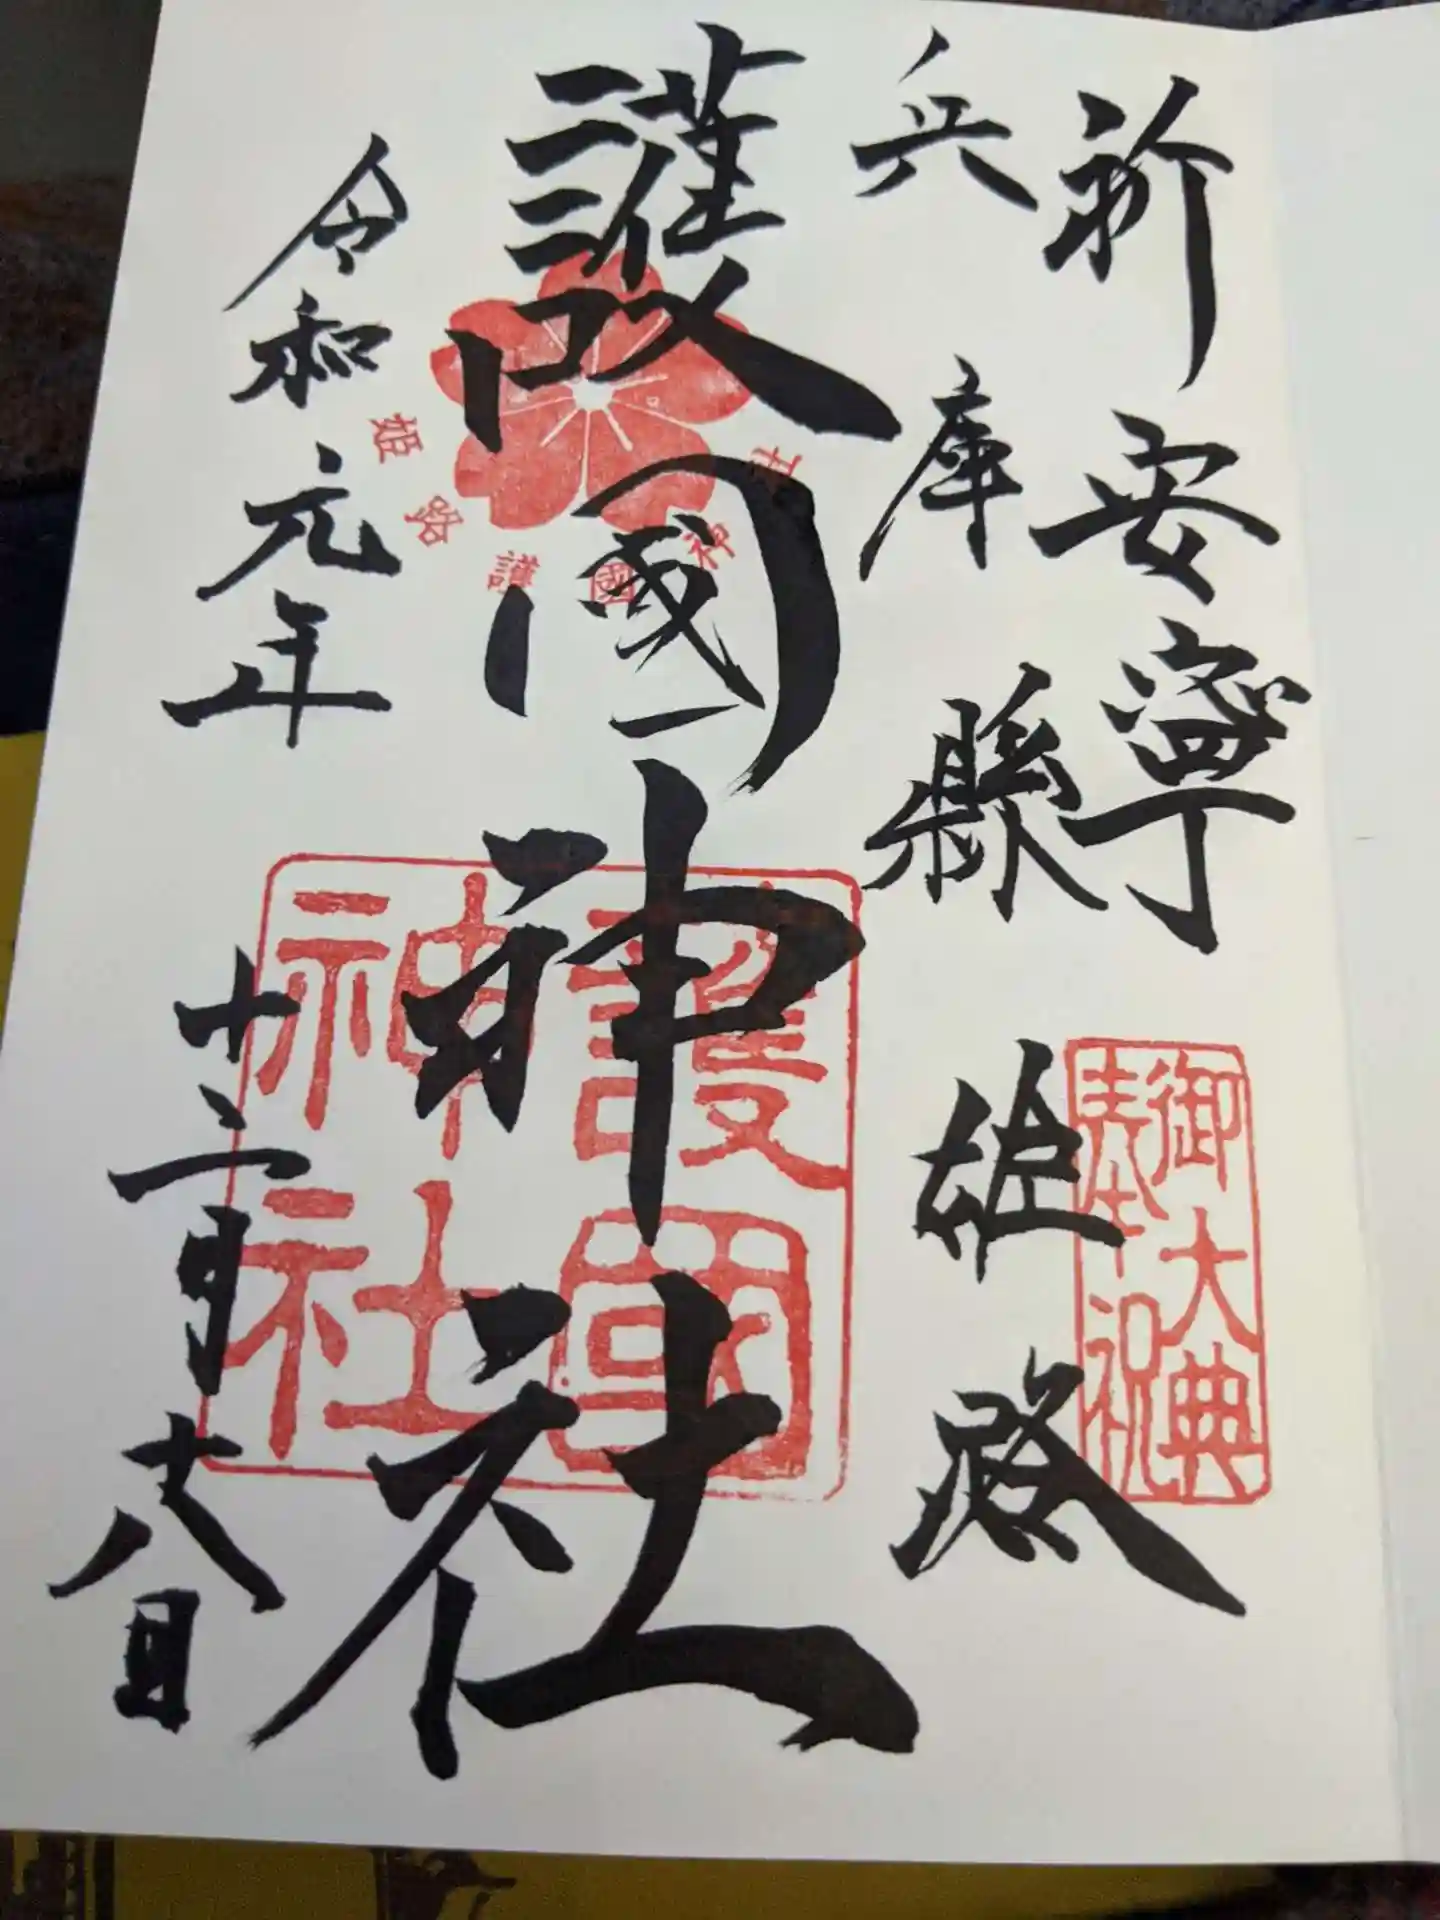 祈安寧
兵庫縣姫路
護國神社
令和元年
十二月十八日
姫路護國神社
護國神社
御大典
奉祝